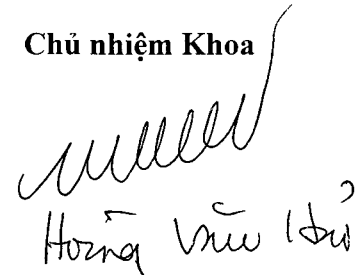 Chủ nhiệm Khoa
Hoàng Văn